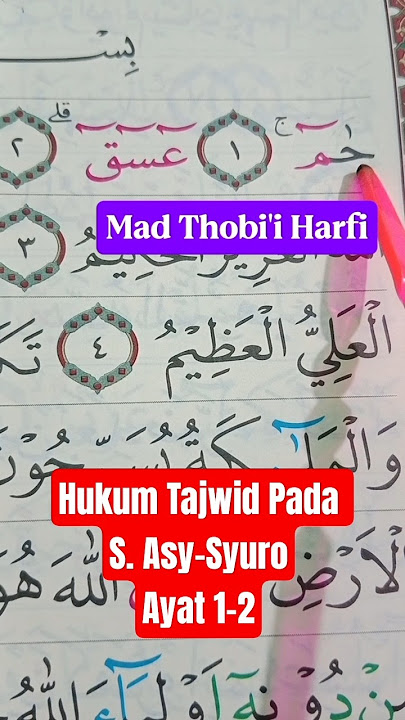 بِسْـ
حٰمۤ ۚ ١ عۤسۤقۤ ۗ ٢
Mad Thobi'i Harfi
الْعَزِيْزُ الْحَكِيْمُ ٣
الْعَلِيُّ الْعَظِيْمُ ٤
وَالْمَلٰۤىِٕكَةُ يُسَبِّحُوْنَ
Hukum Tajwid Pada
S. Asy-Syuro
Ayat 1-2
الْاَرْضِ اللّٰهَ هُوَ
مِنْ دُوْنِهٖٓ اَوْلِيَاۤءَ اللّٰهُ